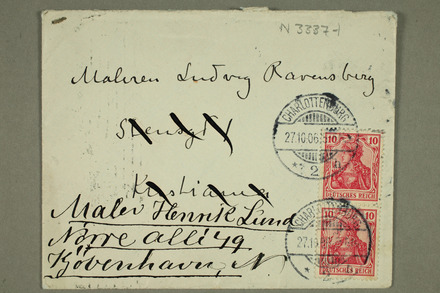 N 3337-1
Maleren Ludvig Ravensberg
CHARLOTTENBURG
27.10.06
* 2
10 10
DEUTSCHES REICH
Stensgt 1
Kristiania
10 10
DEUTSCHES REICH
27.10.
Maler Henrik Lund
Nørre allé 49
Kjøbenhaven, N